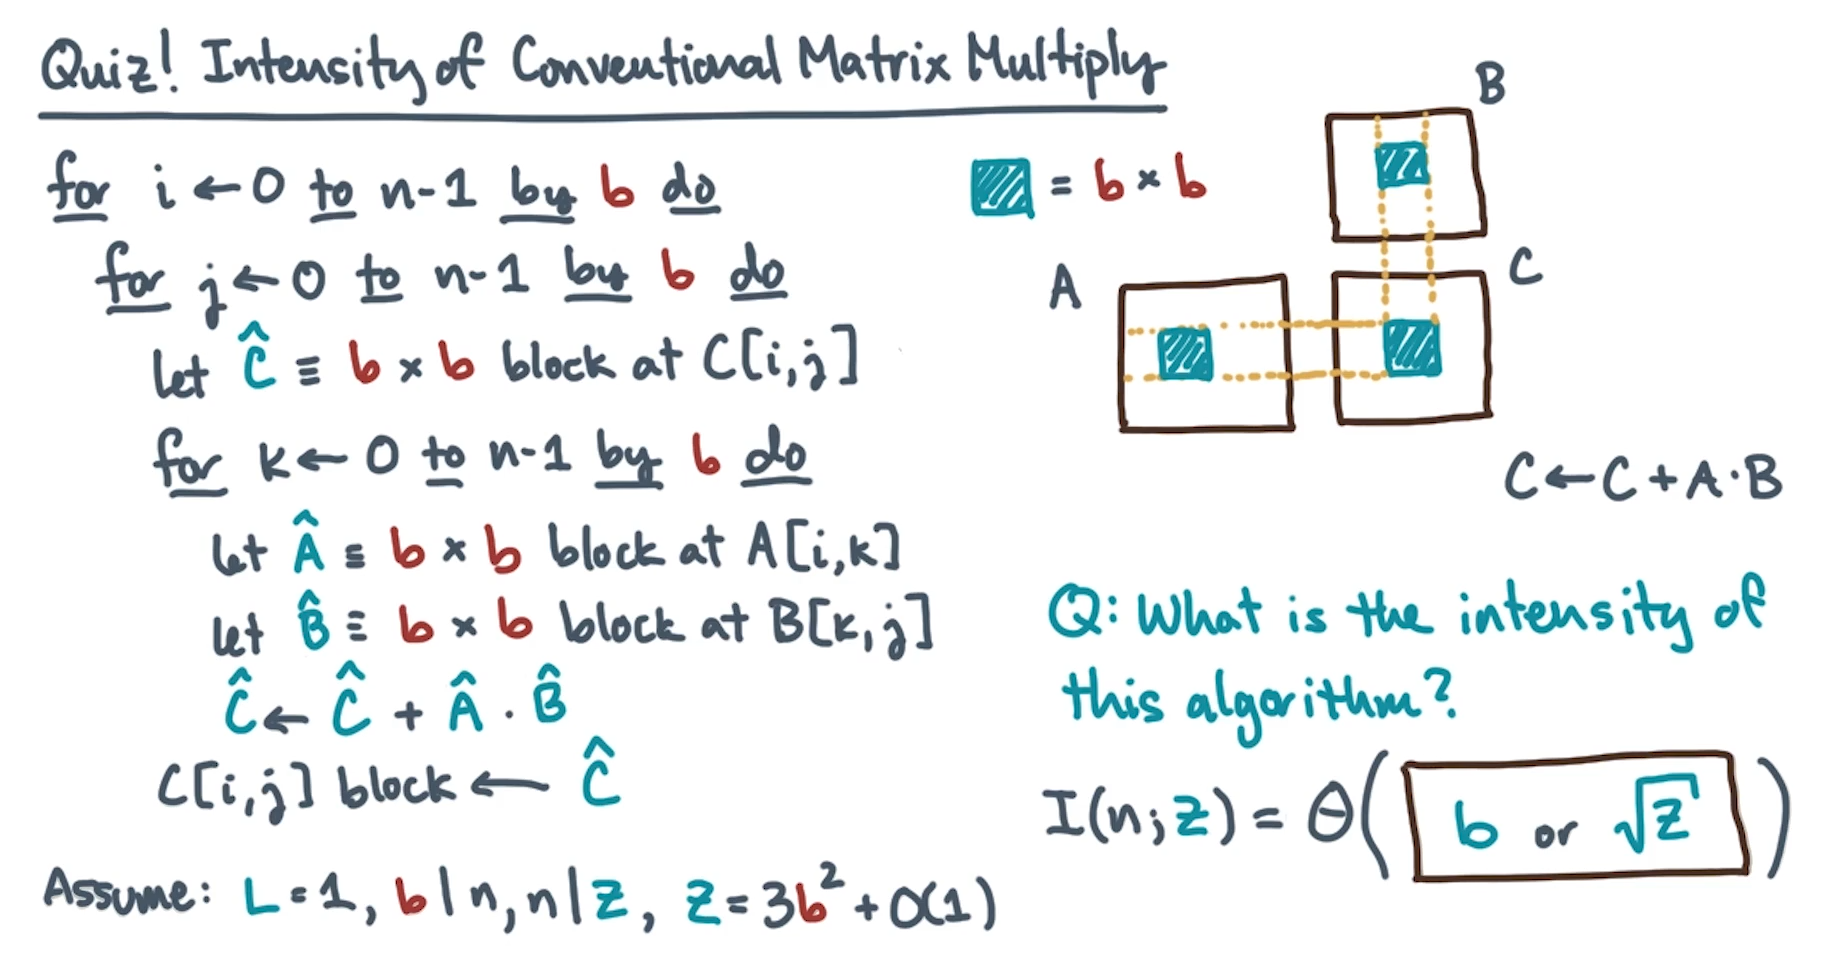 Quiz! Intensity of Conventional Matrix Multiply
for i ← 0 to n-1 by b do
for j ← 0 to n-1 by b do
let Ĉ ≡ b × b block at C[i,j]
for k ← 0 to n-1 by b do
let Â ≡ b × b block at A[i,k]
let B̂ ≡ b × b block at B[k,j]
Ĉ ← Ĉ + Â · B̂
C[i,j] block ← Ĉ
Assume: L = 1, b | n, n | Z, Z = 3b² + O(1)
= b × b
B
A
C
C ← C + A · B
Q: What is the intensity of
this algorithm?
I(n; Z) = Θ( b or √Z )